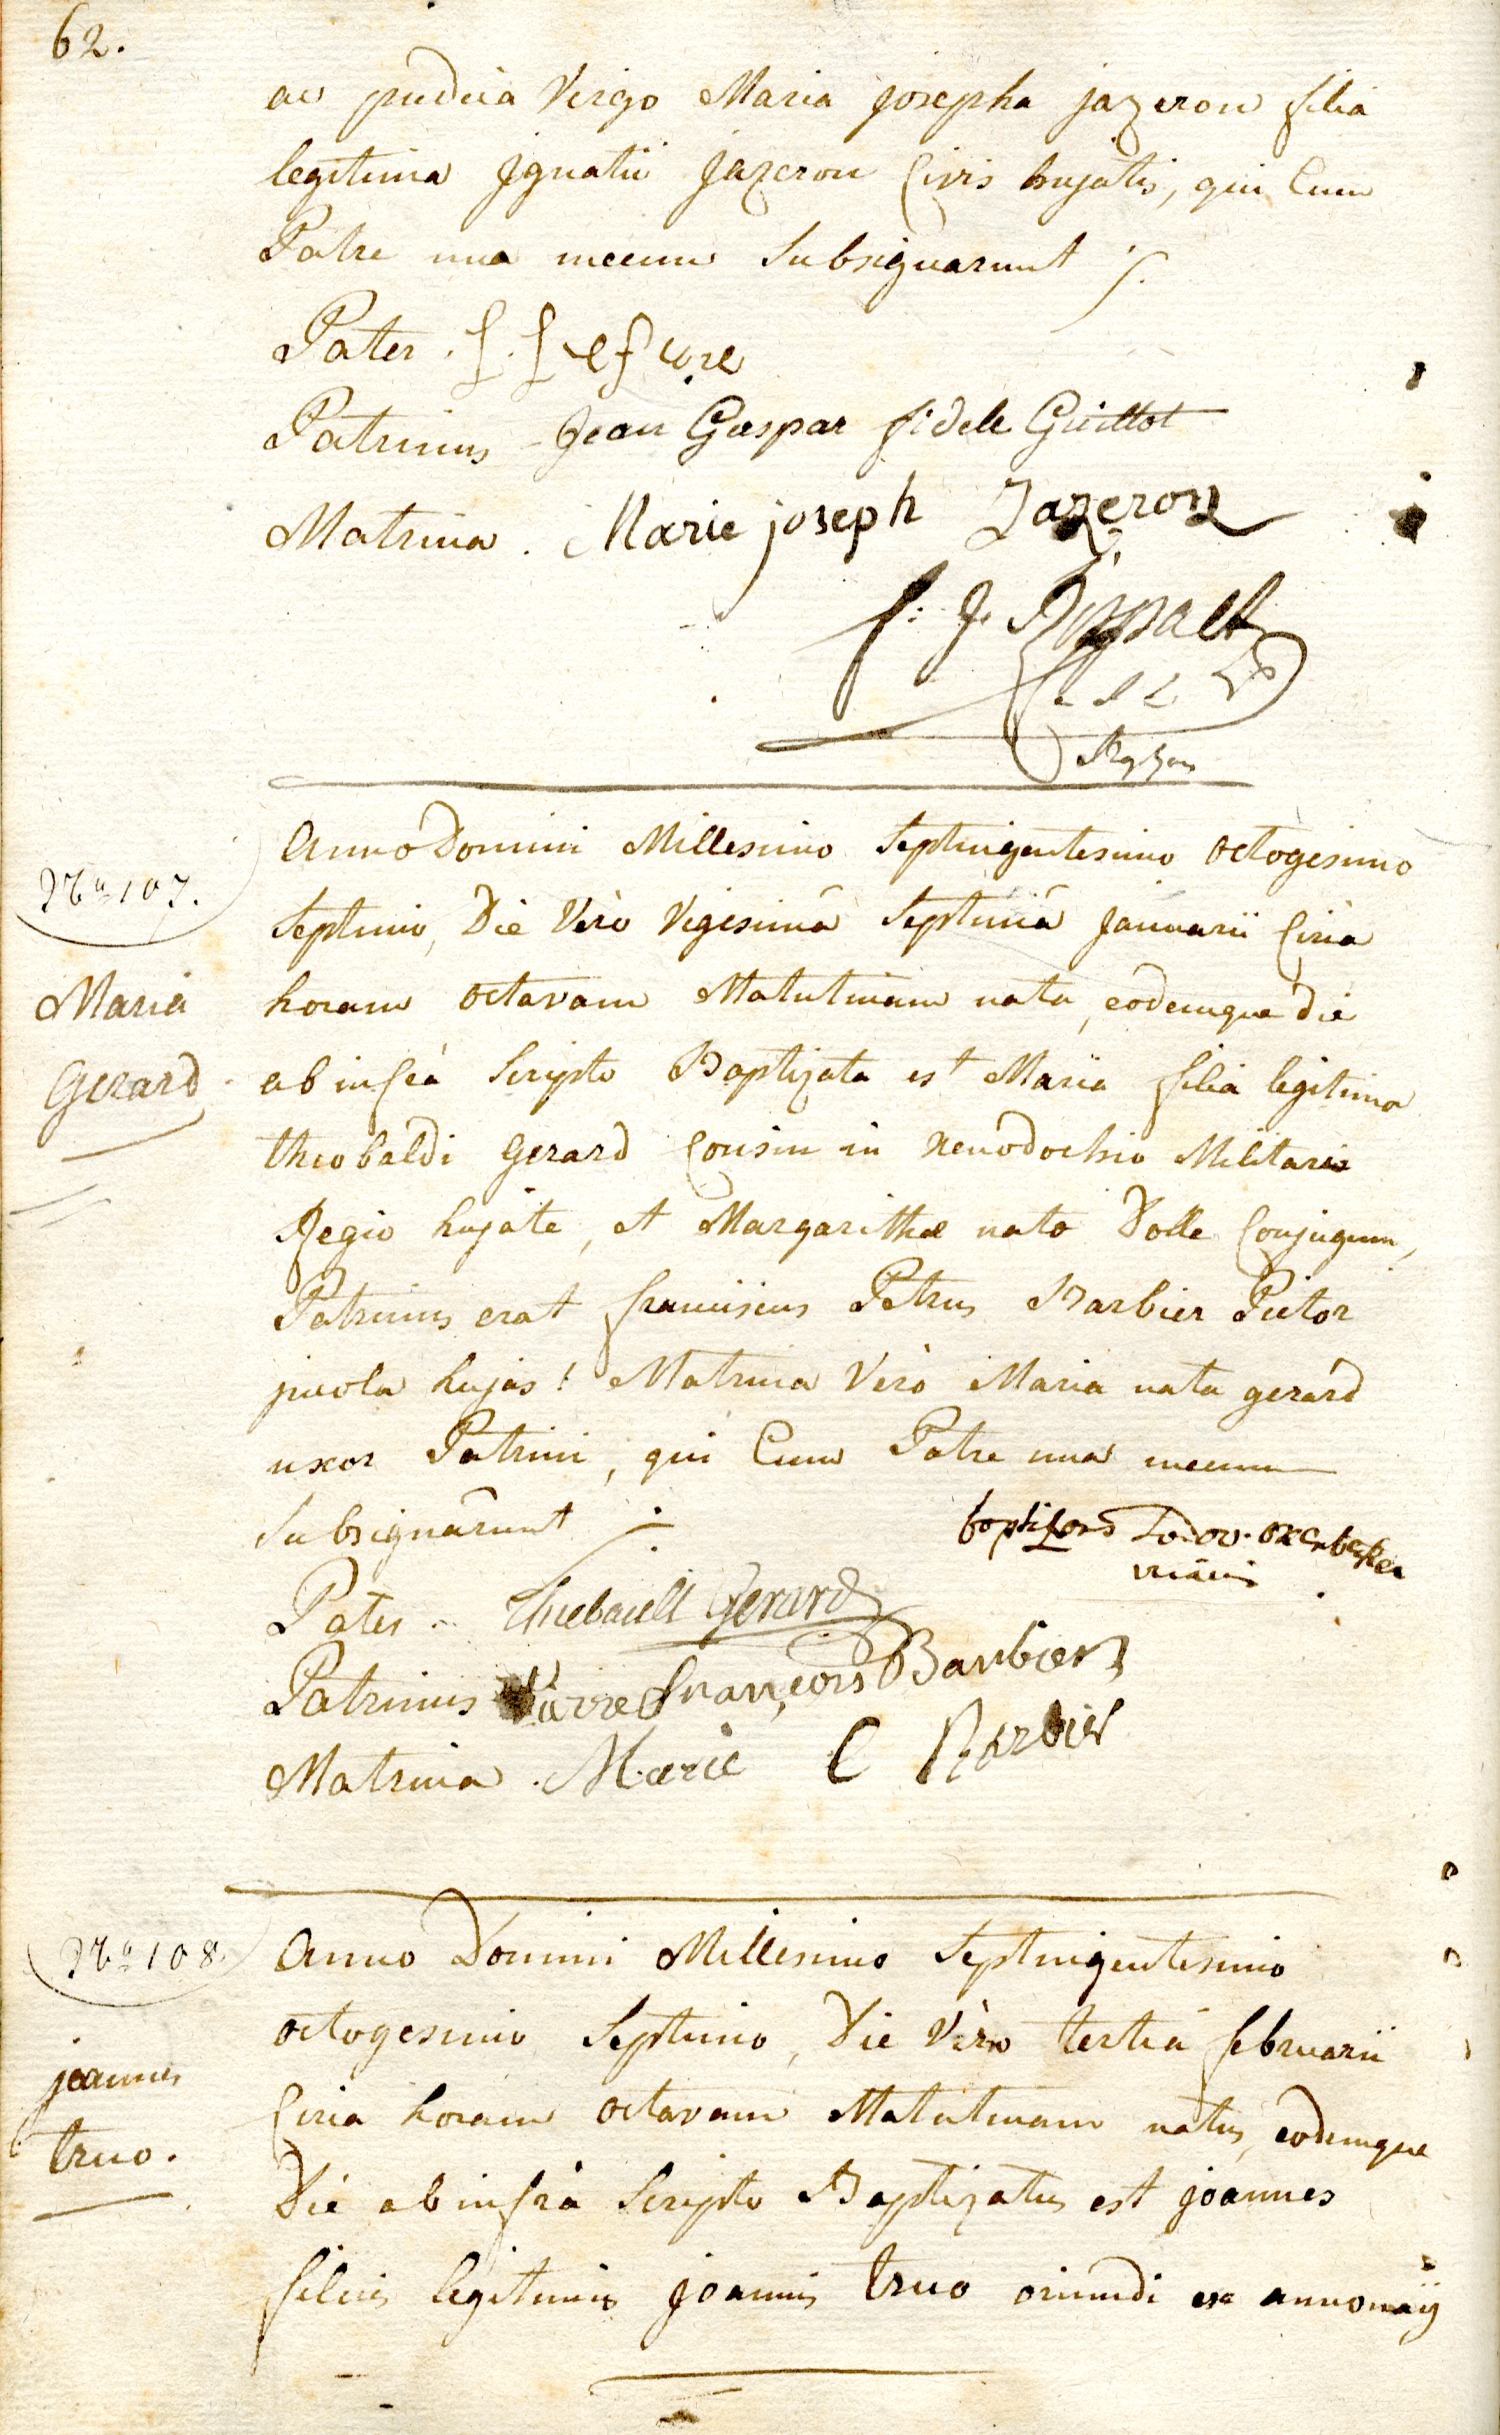 62.
ac pudica Virgo Maria Josepha jazeron filia
legitima Ignatii Jazeron Civis hujatis, qui Cum
Patre una mecum Subsignarunt
Pater.
Patrinus Jean Gaspar fidele Guillot
Matrina. Marie joseph Jazeron
f: J.
Anno Domini Millesimo Septingentesimo octogesimo
Nro 107.
Septimo, Die Verò Vigesimâ Septimâ Januarii Circa
Maria
horam octavam Matutinam nata, eodemque die
Gerard
ab infrà Scripto Baptizata est Maria filia legitima
theobaldi Gerard Cousin in Xenodochio Militari
Regio hujate, et Margarithæ nato Dolle Conjugum,
Patrinus erat franciscus Petrus Barbier Pictor
incola hujas: Matrina Verò Maria nata gerard
uxor Patrini, qui Cum Patre una mecum
Subsignârunt
baptizans
Pater. Thiebault Gerard
Patrinus Piärre François Barbier
Matrina. Marie C Barbier
Nro 108.
Anno Domini Millesimo Septingentesimo
octogesimo Septimo, Die Verò tertiâ februarii
joannes
Circa horam octavam Matutinam natus, eodemque
truo.
Die ab infrà Scripto Baptizatus est joannes
filius legitimus joannis truo oriundi ex annonaÿ